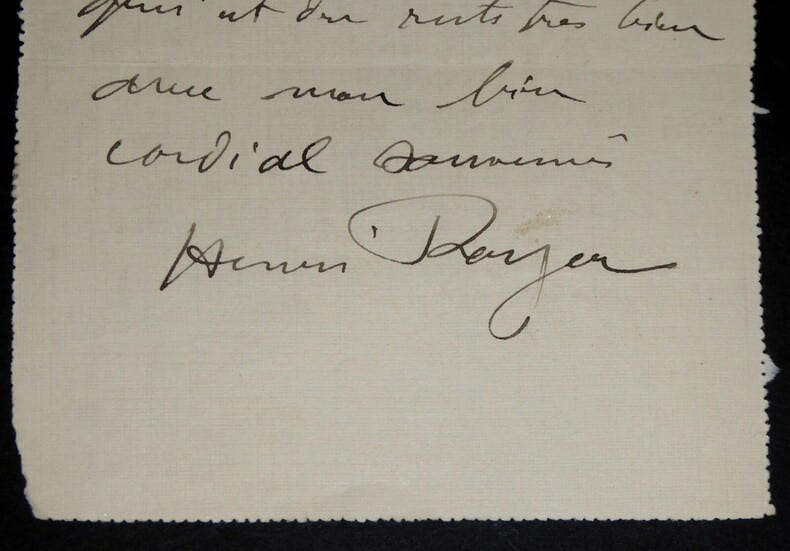 qui est du reste très bien
avec mon bien
cordial souvenir
Henri Royer